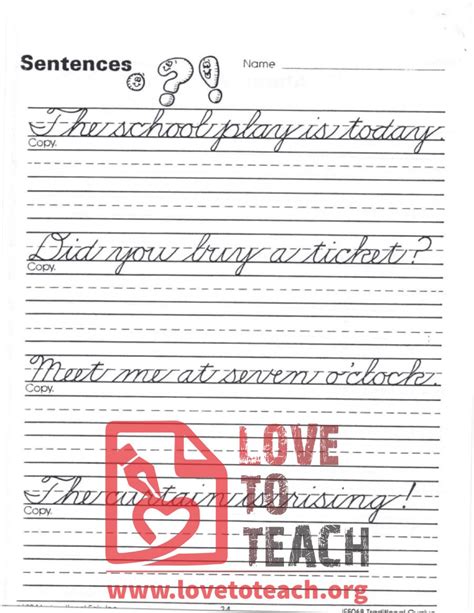 Sentences
Name
? !
The school play is today.
Copy.
Did you buy a ticket?
Copy.
Meet me at seven o'clock.
Copy.
The curtain is rising!
Copy.
LOVE
TO
TEACH
www.lovetoteach.org
24